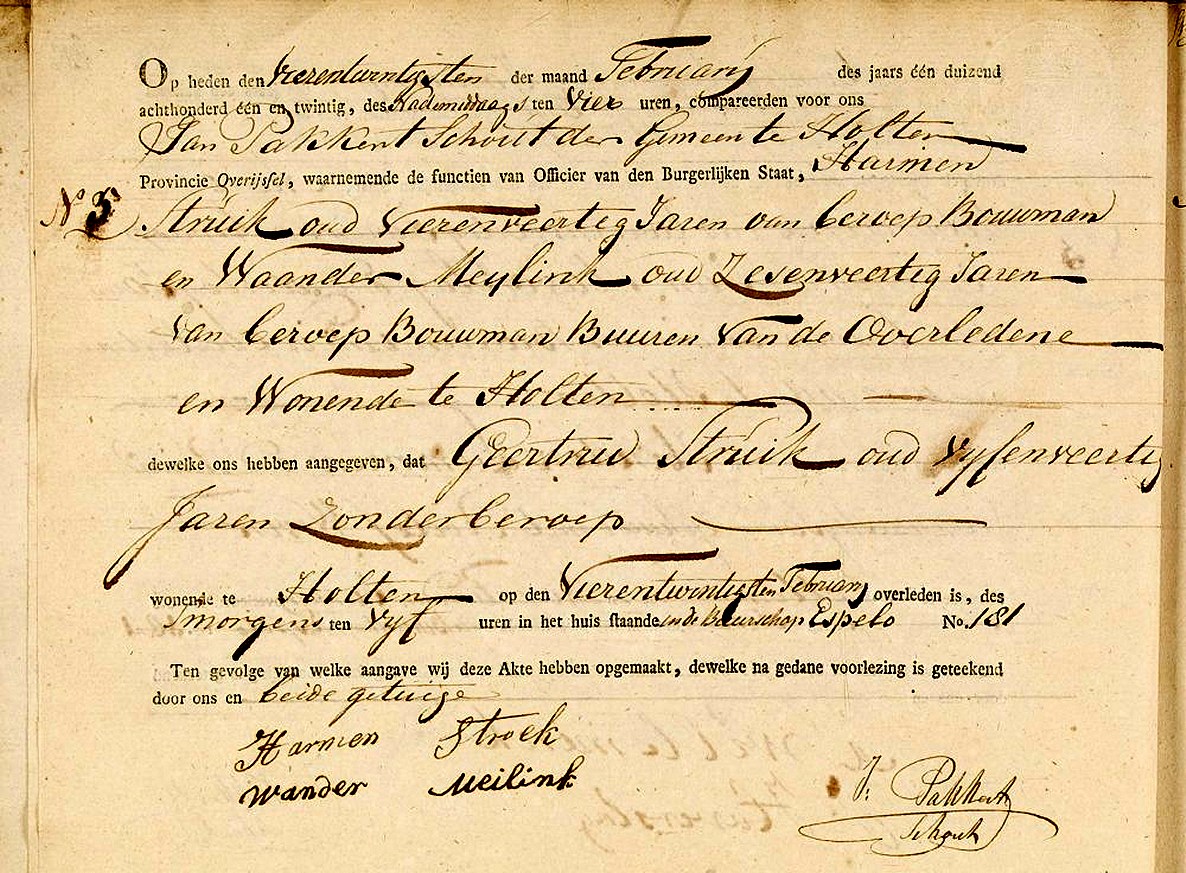 Op heden den Vierentwintigsten der maand Februarij des jaars één duizend
achthonderd één en twintig, des Nademiddaags ten Vier uren, compareerden voor ons
Jan Pakkert Schout der Gemeente Holten
Provincie Overijssel, waarnemende de functien van Officier van den Burgerlijken Staat, Harmen
No 3. Struik oud Vierenveertig Jaren van beroep Bouwman
en Waander Meylink oud Zesenveertig Jaren
van beroep Bouwman Buuren Van de Overledene
en Wonende te Holten
dewelke ons hebben aangegeven, dat Geertrui Struik oud Vyfenveertig
Jaren Zonder beroep
wonende te Holten op den Vierentwintigsten Februarij overleden is, des
Smorgens ten Vyf uren in het huis staande inde Buurschap Espelo No. 181
Ten gevolge van welke aangave wij deze Akte hebben opgemaakt, dewelke na gedane voorlezing is geteekend
door ons en beide getuige
Harmen Stroek
Wander Meilink
J: Pakkert
Schout